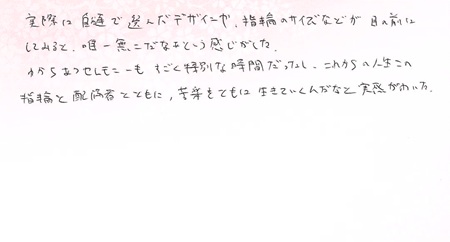 実際に自通で選んだデザインや、指輪のサイズなどが目の前に
してみると、唯一無二だなぁという感じがした。
わからあつせしもニーも すごく特別な時間だったし、これからの人生この
指輪と配偶者とともに、苦楽をともに生きていくんだなと実感がわいた。